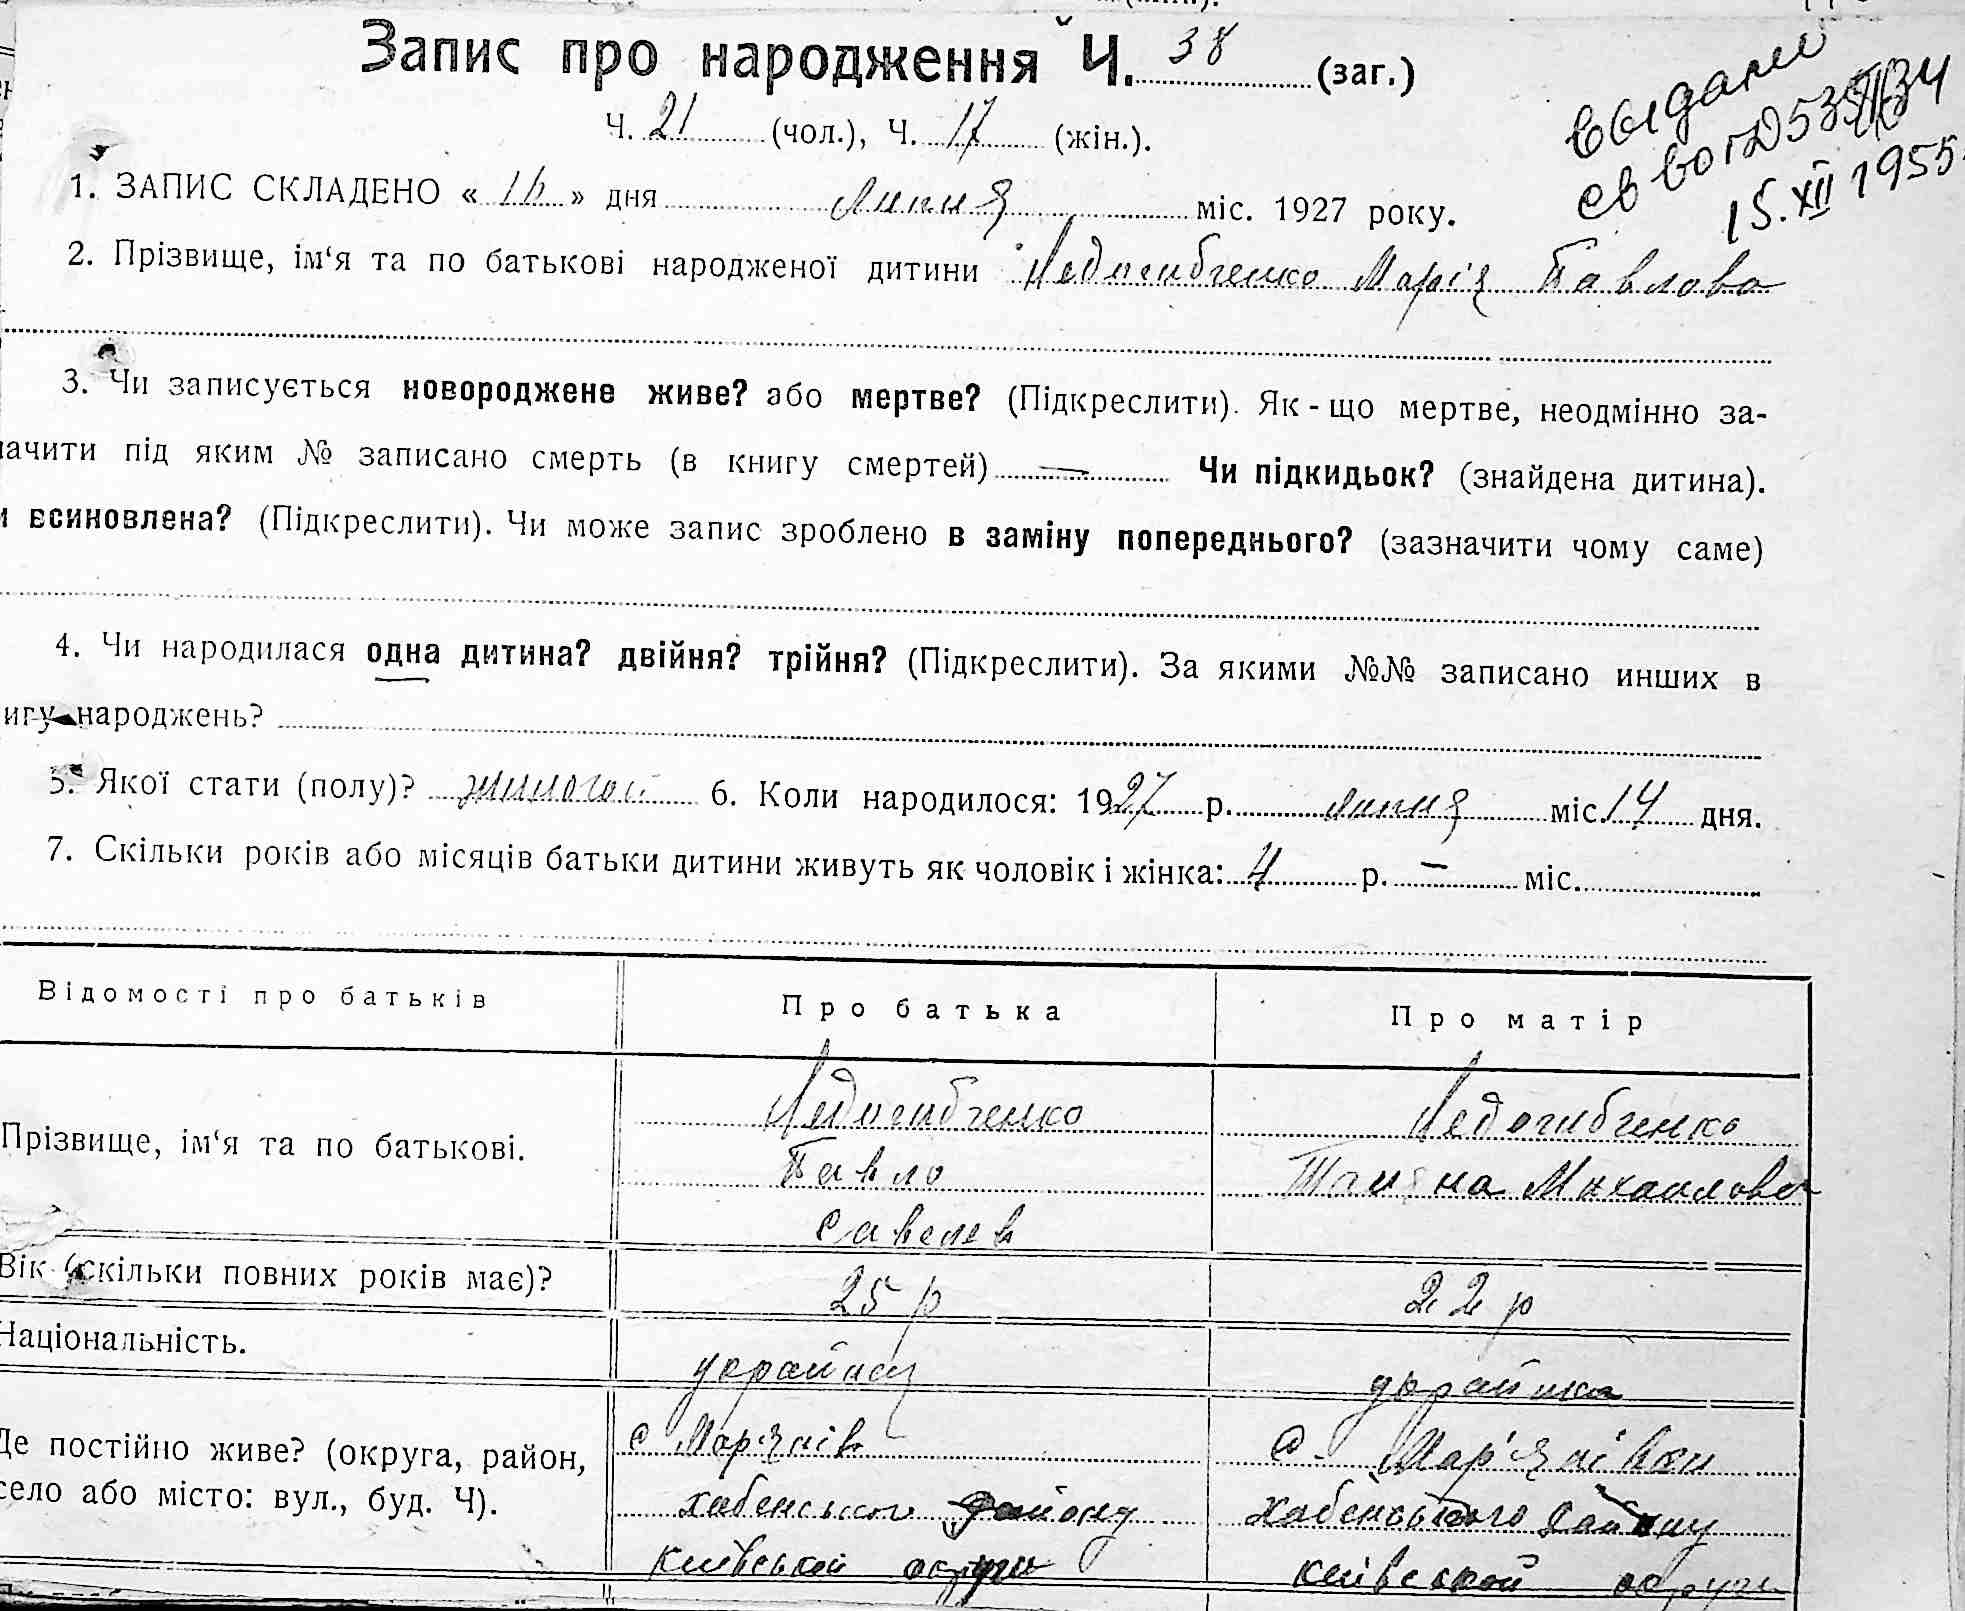 Запис про народження Ч. 38 (заг.)
Ч. 21 (чол.), Ч. 17 (жін.).
выдано
15.XII 1955
1. ЗАПИС СКЛАДЕНО « 16 » дня липня міс. 1927 року.
2. Прізвище, ім‘я та по батькові народженої дитини Недогибченко Марія Павлова
3. Чи записується новороджене живе? або мертве? (Підкреслити). Як - що мертве, неодмінно за-
начити під яким № записано смерть (в книгу смертей) — Чи підкидьок? (знайдена дитина).
и всиновлена? (Підкреслити). Чи може запис зроблено в заміну попереднього? (зазначити чому саме)
4. Чи народилася одна дитина? двійня? трійня? (Підкреслити). За якими №№ записано инших в
игу народжень?
5. Якої стати (полу)? жиночой 6. Коли народилося: 1927 р. липня міс. 14 дня.
7. Скільки років або місяців батьки дитини живуть як чоловік і жінка: 4 р. — міс.
Відомості про батьків Про батька Про матір
Прізвище, ім‘я та по батькові. Недогибченко Недогибченко
Павло Татяна Михаилова
Савелев
Вік (скільки повних років має)? 25 р 22 р
Національність. украйнец украинка
Де постійно живе? (округа, район, с Мар'янів с. Мар'янівки
село або місто: вул., буд. Ч). хабенського району хабенського району
Київськой округи київськой округи